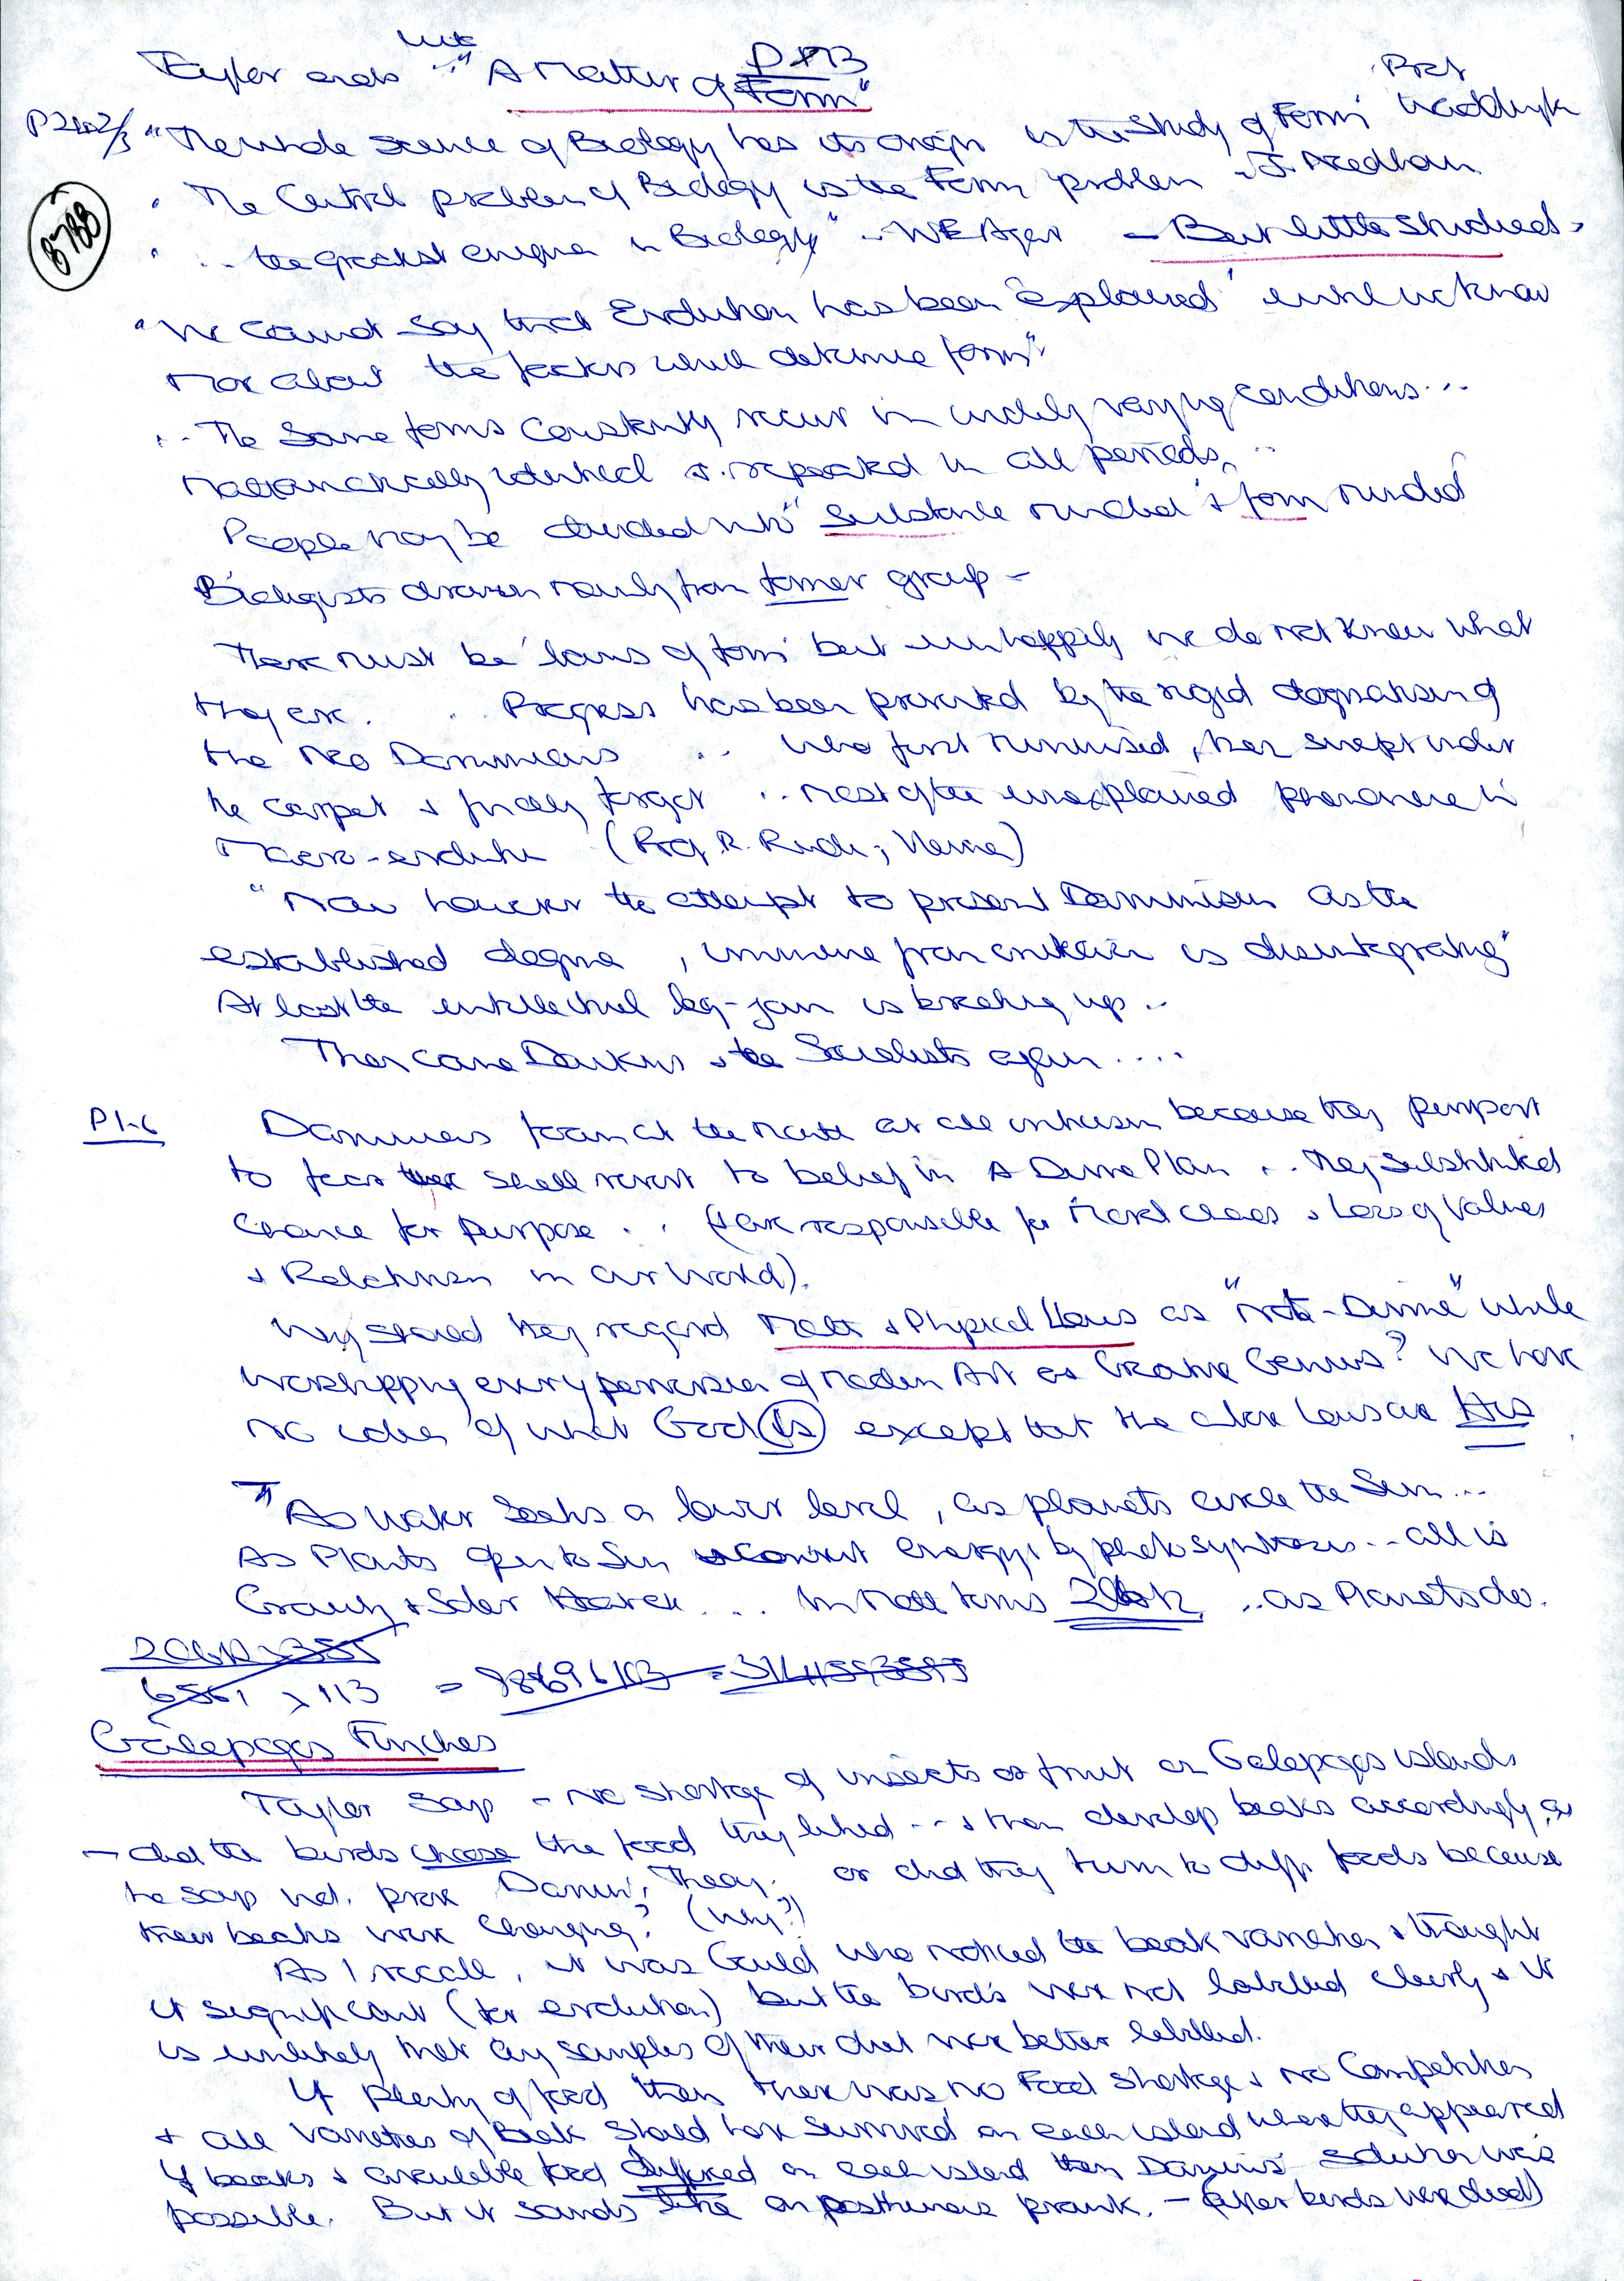 Taylor ends with "A Matter of Form"
P 242/3 "The whole science of Biology has its origin in the study of Form' Prof Waddington
. The Central problem of Biology is the Form problem - J. Needham
8788
. .. the greatest enigma in Biology" .. WE Agar - But little studied
"We cannot say that Evolution has been 'explained' until we know
more about the factors which determine form"
.. The same forms constantly recur in widely varying conditions...
mathematically identical & repeated in all periods, ..
People may be divided into "substance minded' & form minded
Biologists drawn mainly from former group -
There must be 'laws of form' but unhappily we do not know what
they are. .. Progress has been prevented by the rigid dogmatising of
the Neo Darwinians .. who first minimised, then swept under
the carpet & finally forgot .. most of the unexplained phenomena in
Macro-evolution (Prof. R. , Vienna)
"Now however the attempt to present Darwinism as the
established dogma, immune from criticism is disintegrating"
At last the intellectual log-jam is breaking up ..
Then came Dawkins & the Socialists again ....
P1-6 Darwinians foam at the mouth at all criticism because they purport
to fear we shall revert to belief in A Divine Plan ... They substituted
Chance for Purpose .. (& are responsible for Moral chaos & Loss of Values
& Relativism in our World).
Why should they regard Math & Physical Laws as "not-Divine" while
worshipping every perversion of Modern Art as Creative Genius? We have
no idea of what God is except that the above Laws are His
As Water Seeks a lower level, as planets circle the Sun ...
As Plants open to Sun & convert energy by photosynthesis .. all is
Gravity & Solar .... In Math terms .. as Planets do.
6561 x 113 = 98696103 = 3141593595
Galapagos Finches
Taylor says - no shortage of insects or fruit on Galapagos islands
- did the birds choose the food they liked ... & then develop beaks accordingly, as
he says not. prove Darwin's Theory. or did they turn to diff foods because
their beaks were changing? (why?)
As I recall, it was Gould who noticed the beak variation & thought
it significant (for evolution) but the birds were not labelled clearly & it
is unlikely that any samples of their diet were better labelled.
If plenty of food then there was no Food shortage & no Competition
& all varieties of Beak should have survived on each island where they appeared
If beaks & available food differed on each island then Darwin's solution was
possible. But it sounds like a posthumous prank. - (after birds were dead)